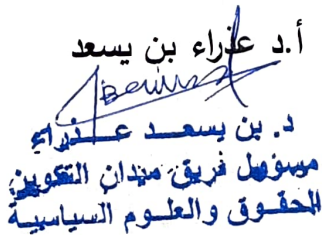 أ.د عذراء بن يسعد
د. بن يسعد عذراء
مسؤول فريق ميدان التكوين
الحقوق والعلوم السياسية